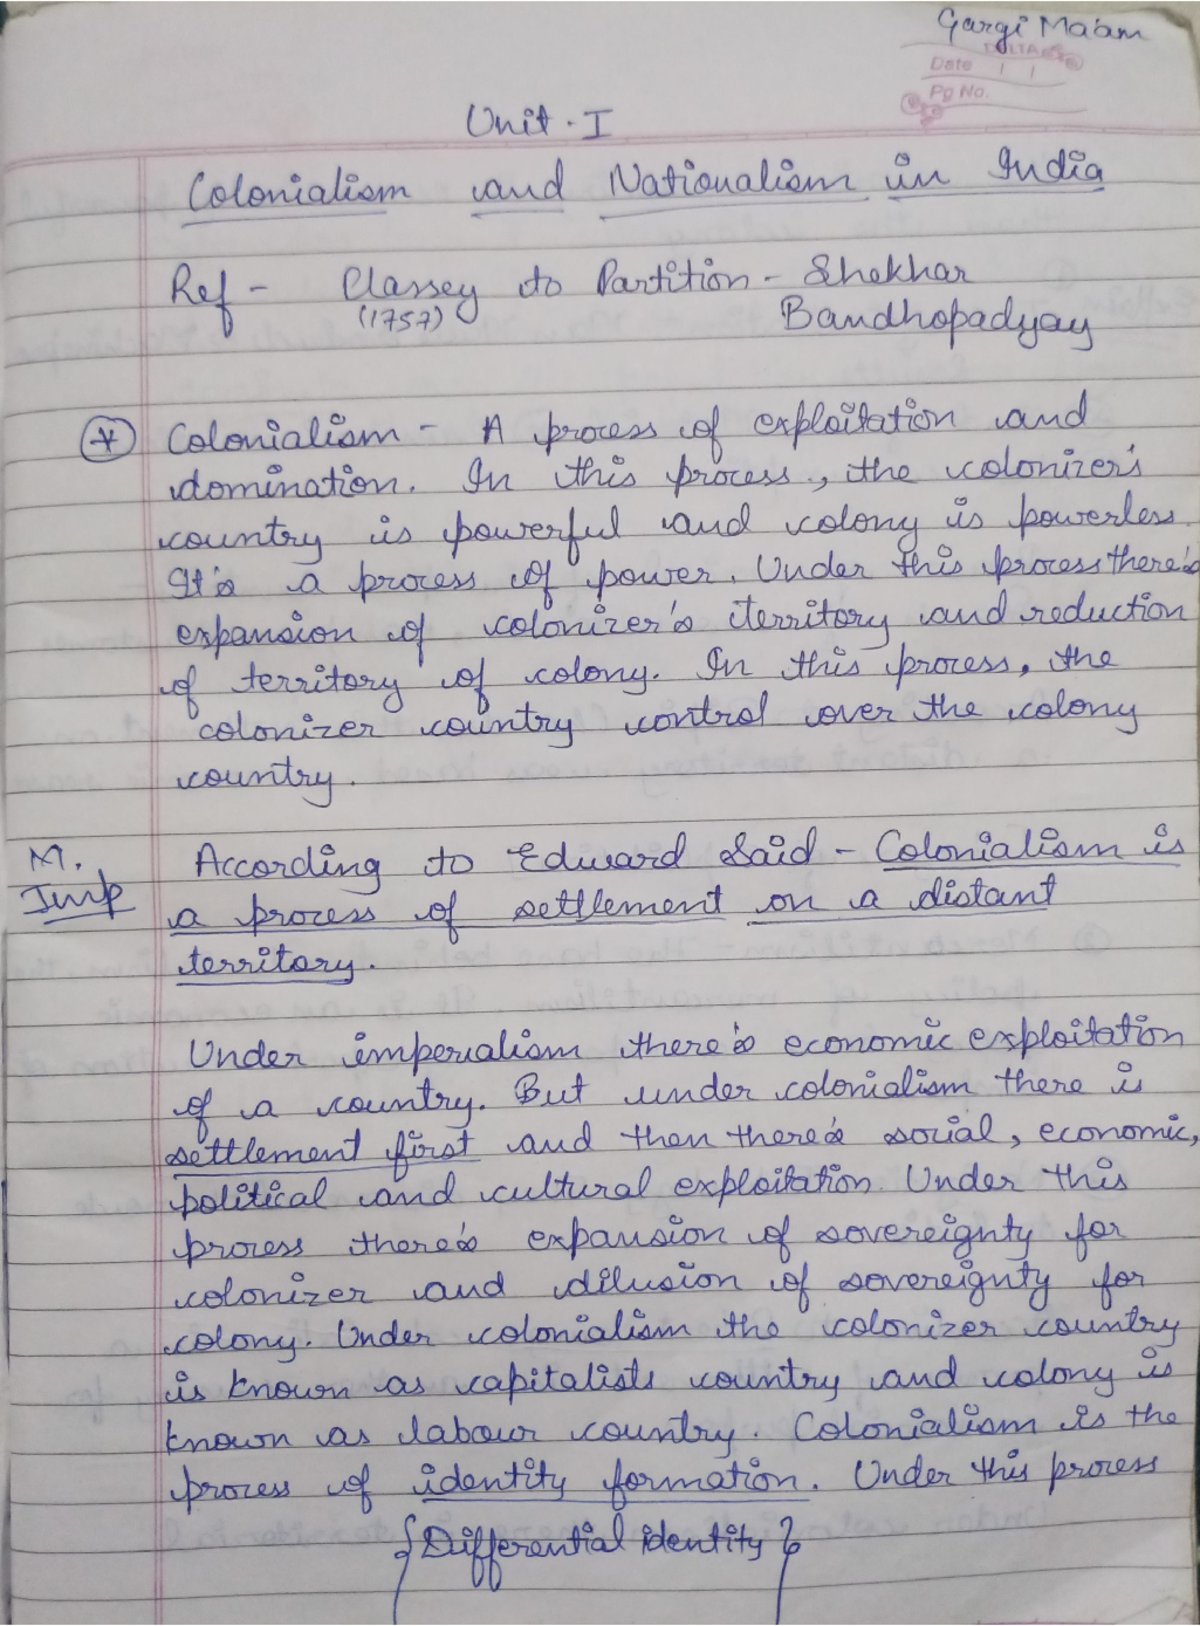 Gargi Ma'am
DELTA
Date / /
Pg No.
Unit - I
Colonialism and Nationalism in India
Ref - Plassey to Partition - Shekhar
(1757) Bandhopadyay
* Colonialism - A process of exploitation and
domination. In this process, the colonizer's
country is powerful and colony is powerless.
It's a process of power. Under this process there's
expansion of colonizer's territory and reduction
of territory of colony. In this process, the
colonizer country control over the colony
country.
M. According to Edward Said - Colonialism is
Imp a process of settlement on a distant
territory.
Under imperialism there's economic exploitation
of a country. But under colonialism there is
settlement first and then there's social, economic,
political and cultural exploitation. Under this
process there's expansion of sovereignty for
colonizer and dilusion of sovereignty for
colony. Under colonialism the colonizer country
is known as capitalists country and colony is
known as labour country. Colonialism is the
process of identity formation. Under this process
{Differential identity}